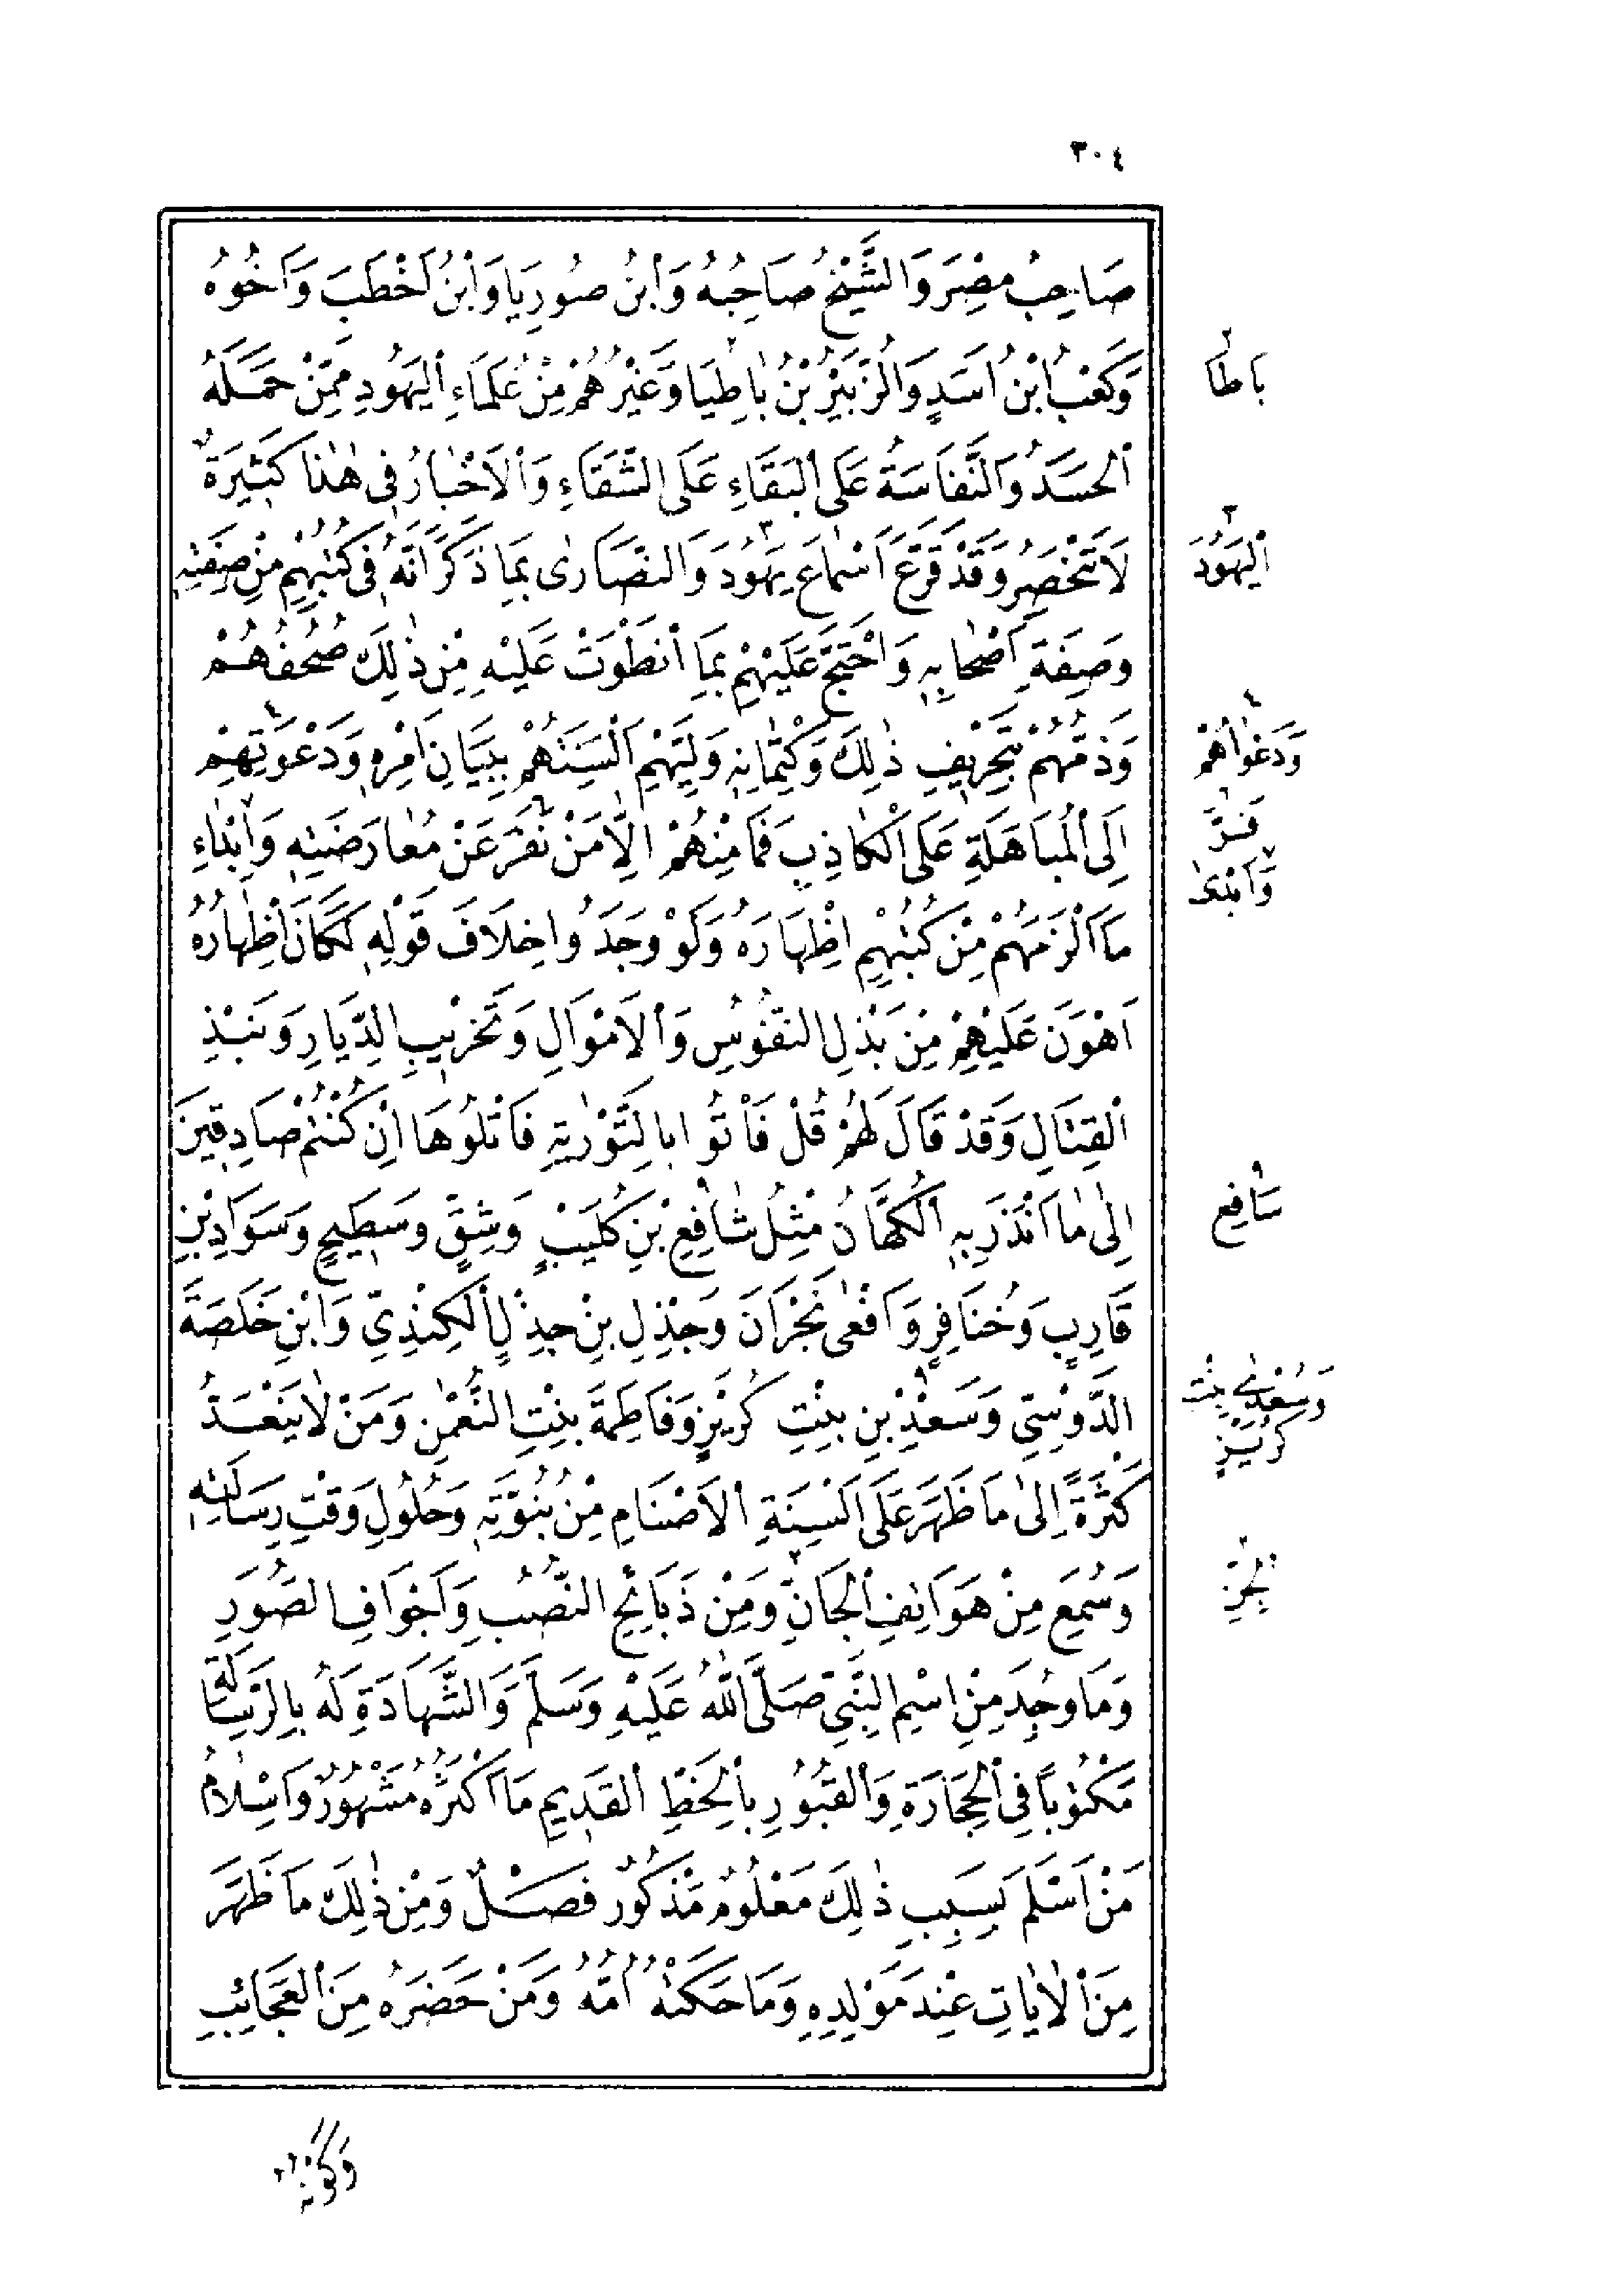 ٣٠٤
صَاحِبُ مِصْرَ وَالشَّيْخُ صَاحِبُهُ وَابْنُ صُورِيَا وَابْنُ اَخْطَبَ وَاَخُوهُ
وَكَعْبُ ابْنُ اَسَدٍ وَالزُّبَيْرُ بْنُ بَاطِيَا وَغَيْرُهُمْ مِنْ عُلَمَاءِ الْيَهُودِ مِمَّنْ حَمَلَهُ
الْحَسَدُ وَالنَّفَاسَةُ عَلَى الْبَقَاءِ عَلَى الشَّقَاءِ وَالْاَخْبَارُ فِى هٰذَا كَثِيرَةٌ
لَا تَنْحَصِرُ وَقَدْ قَرَّعَ اَسْمَاعَ يَهُودَ وَالنَّصَارٰى بِمَا ذَكَرَ اَنَّهُ فِى كُتُبِهِمْ مِنْ صِفَتِهِ
وَصِفَةِ اَصْحَابِهِ وَاحْتَجَّ عَلَيْهِمْ بِمَا انْطَوَتْ عَلَيْهِ مِنْ ذٰلِكَ صُحُفُهُمْ
وَذَمَّهُمْ بِتَحْرِيفِ ذٰلِكَ وَكِتْمَانِهِ وَلَيِّهِمْ اَلْسِنَتَهُمْ بِبَيَانِ اَمْرِهِ وَدَعْوَتِهِمْ
اِلَى الْمُبَاهَلَةِ عَلَى الْكَاذِبِ فَمَا مِنْهُمْ اِلَّا مَنْ نَفَرَ عَنْ مُعَارَضَتِهِ وَاِبْدَاءِ
مَا اَلْزَمَهُمْ مِنْ كُتُبِهِمْ اِظْهَارَهُ وَلَوْ وَجَدُوا خِلَافَ قَوْلِهِ لَكَانَ اِظْهَارُهُ
اَهْوَنَ عَلَيْهِمْ مِنْ بَذْلِ النُّفُوسِ وَالْاَمْوَالِ وَتَخْرِيبِ الدِّيَارِ وَنَبْذِ
الْقِتَالِ وَقَدْ قَالَ لَهُمْ قُلْ فَأْتُوا بِالتَّوْرٰيةِ فَاتْلُوهَا اِنْ كُنْتُمْ صَادِقِينَ
اِلٰى مَا اَنْذَرَ بِهِ الْكُهَّانُ مِثْلُ شَافِعِ بْنِ كُلَيْبٍ وَشِقٍّ وَسَطِيحٍ وَسَوَادِ بْنِ
قَارِبٍ وَخُنَافِرٍ وَاَفْعٰى نَجْرَانَ وَجَذْلِ بْنِ جَذْلٍ الْكِنْدِىِّ وَابْنِ خَلَصَةَ
الدَّوْسِىِّ وَسَعْدِ بْنِ بِنْتِ كُرَيْزٍ وَفَاطِمَةَ بِنْتِ النُّعْمٰنِ وَمَنْ لَا يَنْعَدُّ
كَثْرَةً اِلٰى مَا ظَهَرَ عَلَى اَلْسِنَةِ الْاَصْنَامِ مِنْ نُبُوَّتِهِ وَحُلُولِ وَقْتِ رِسَالَتِهِ
وَسُمِعَ مِنْ هَوَاتِفِ الْجَانِّ وَمِنْ ذَبَائِحِ النُّصُبِ وَاَجْوَافِ الصُّوَرِ
وَمَا وُجِدَ مِنِ اسْمِ النَّبِىِّ صَلَّى اللّٰهُ عَلَيْهِ وَسَلَّمَ وَالشَّهَادَةِ لَهُ بِالرِّسَالَةِ
مَكْتُوباً فِى الْحِجَارَةِ وَالْقُبُورِ بِالْخَطِّ الْقَدِيمِ مَا اَكْثَرُهُ مَشْهُورٌ وَاِسْلَامُ
مَنْ اَسْلَمَ بِسَبَبِ ذٰلِكَ مَعْلُومٌ مَذْكُورٌ فَصْلٌ وَمِنْ ذٰلِكَ مَا ظَهَرَ
مِنَ الْاٰيَاتِ عِنْدَ مَوْلِدِهِ وَمَا حَكَتْهُ اُمُّهُ وَمَنْ حَضَرَهُ مِنَ الْعَجَائِبِ
٢ بَاطَا
٣ اَلْيَهُودَ
٤ وَدَعْوَاهُمْ
٦ فَرَّ
٧ وَاَبْدٰى
٩ سَافِعِ
وَسُعْدٰى بِنْتِ
كُرَيْزٍ
٢ الْجِنِّ
وَكَوْنِهِ